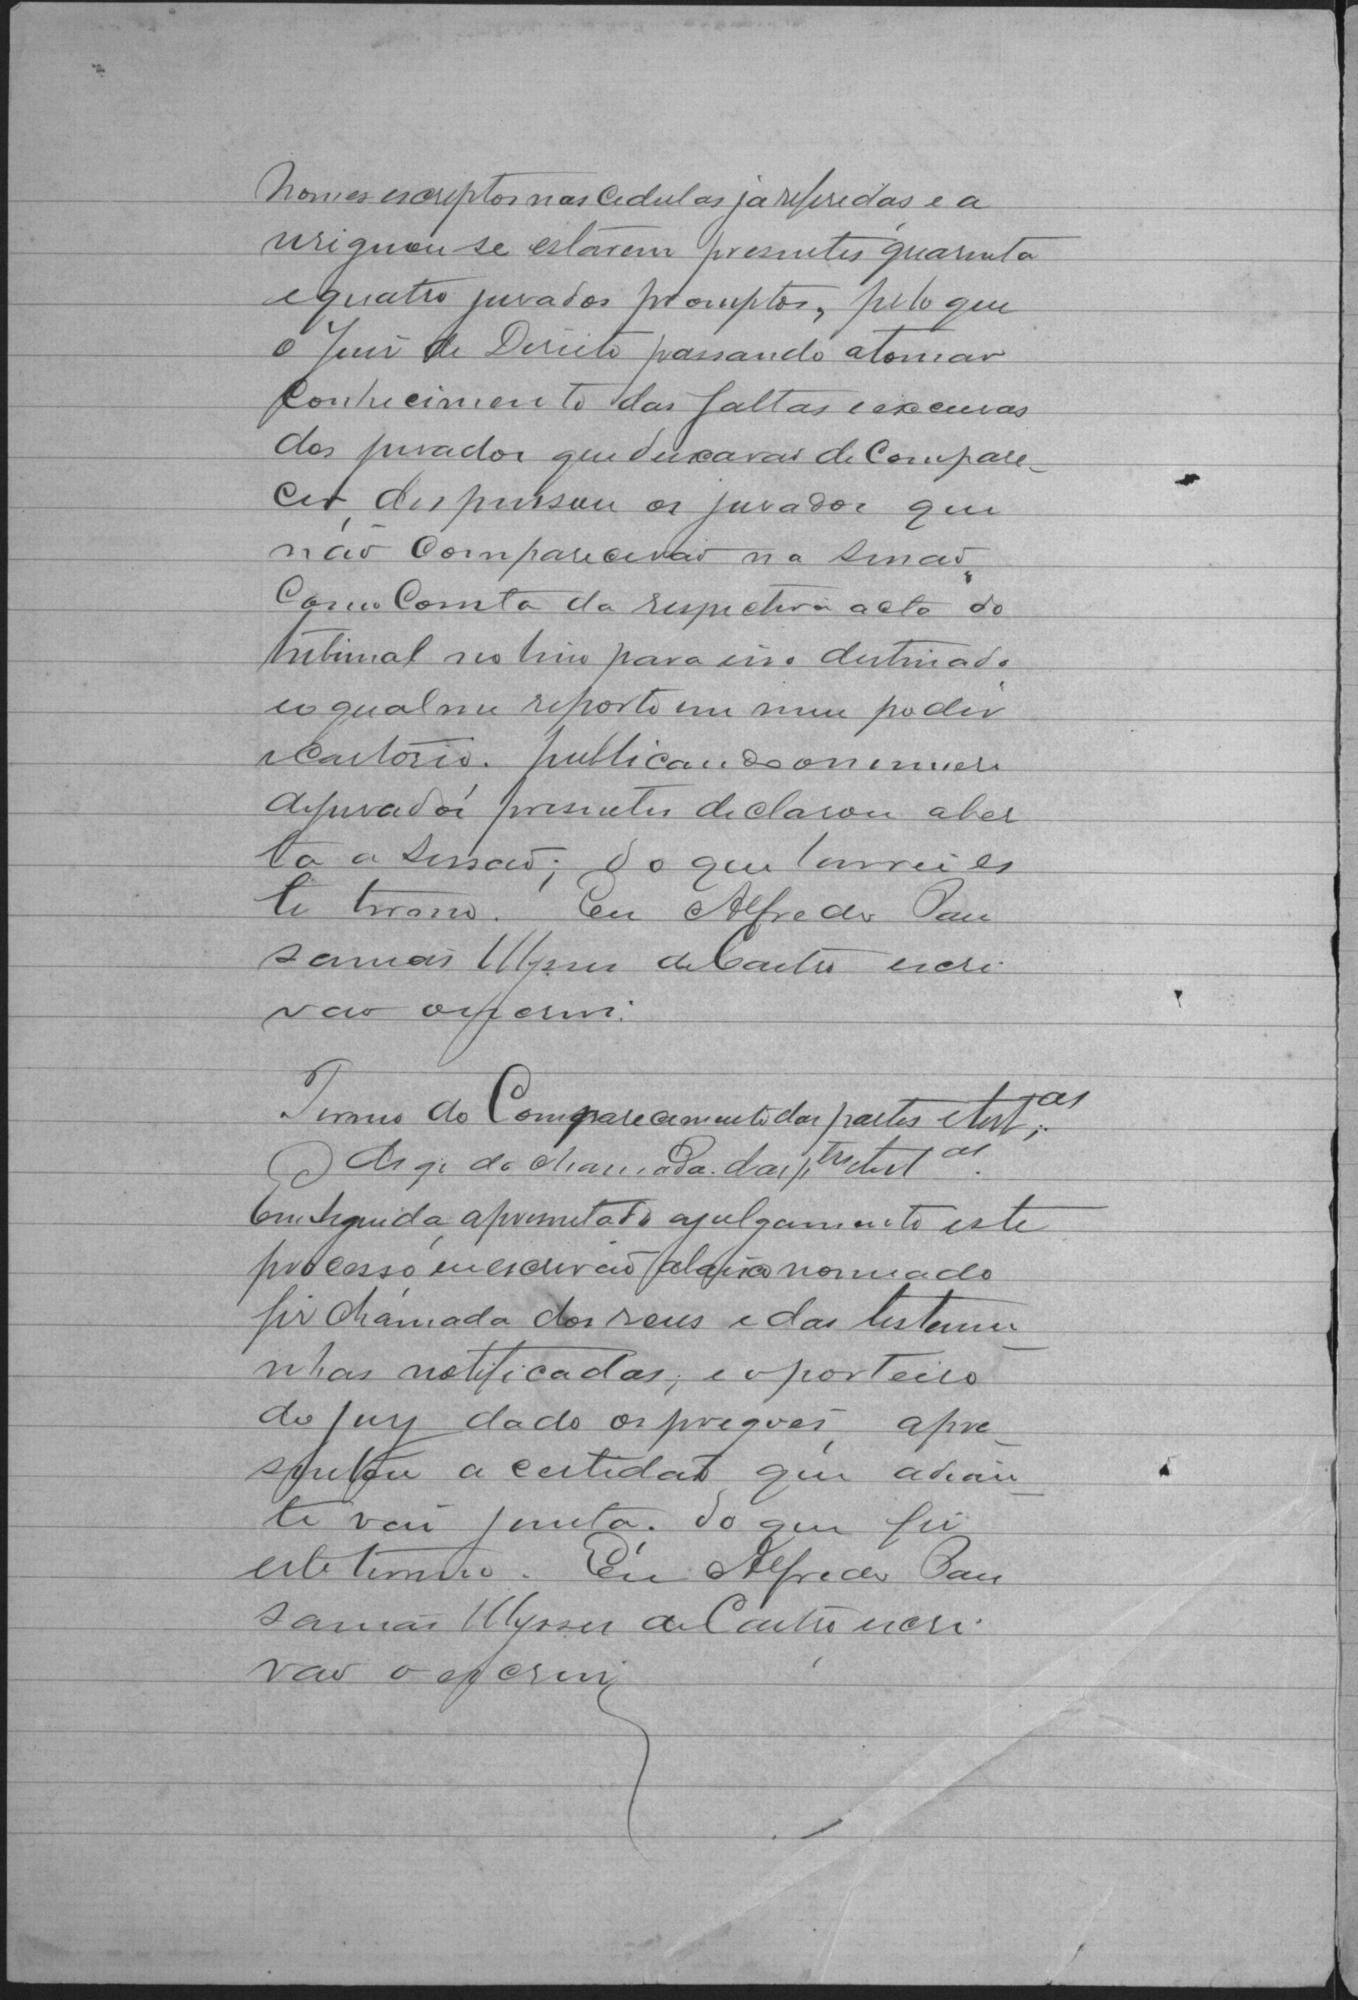 Nomes escriptos nas Cedulas já referidas e a
veriguou se estarem presentes quarenta
e quatro jurados promptos, pelo que
o Juiz de Direito passando a tomar
Conhecimento das faltas e excusas
dos jurados que deixaram de Compare-
cer, dispensou os jurados que
não Comparecerão na sessão,
Como Consta da respectiva acta do
tribunal no livro para isso destinado
eo qual me reporto em meu poder
e Cartorio. publicando o numero
de jurados presentes declarou aber
ta a sessão; do que lavrei es
te termo. Eu Alfredo Pau
sanias Ulysses de Castro escri
vão o escrevi.
Termo do Comparecimento das partes e test.as
de chamada das p.tes e test.as
Em seguida, apresentado a julgamento este
processo eu escrivão abaixo nomeado
fiz chamada dos reus e das testemu
nhas notificadas; e o porteiro
do Jury dado os pregões, apre-
sentou a certidão que adian-
te vai junta. do que fiz
este termo. Eu Alfredo Pau
sanias Ulysses de Castro escri
vão o escrevi